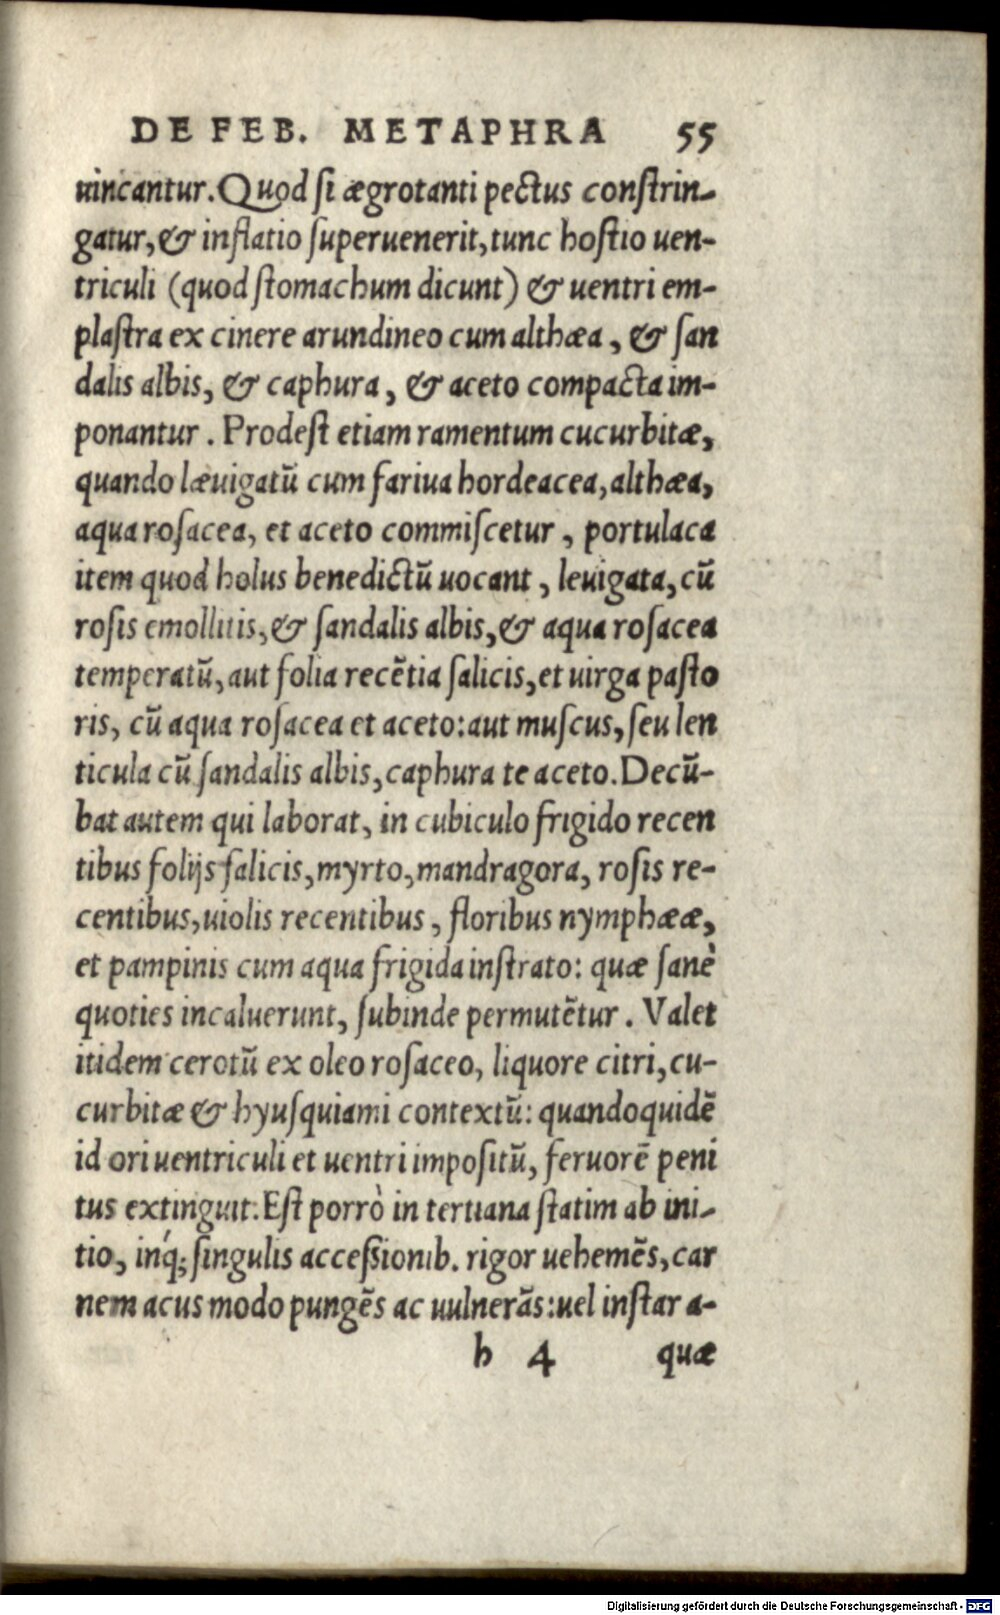 DE FEB. METAPHRA 55
uincantur. Quod ſi ægrotanti pectus conſtrin-
gatur, & inflatio ſuperuenerit, tunc hoſtio uen-
triculi (quod ſtomachum dicunt) & uentri em-
plaſtra ex cinere arundineo cum althæa, & ſan
dalis albis, & caphura, & aceto compacta im-
ponantur. Prodeſt etiam ramentum cucurbitæ,
quando læuigatū cum fariua hordeacea, althæa,
aqua roſacea, et aceto commiſcetur, portulaca
item quod holus benedictū uocant, leuigata, cū
roſis emollitis, & ſandalis albis, & aqua roſacea
temperatū, aut folia recētia ſalicis, et uirga paſto
ris, cū aqua roſacea et aceto: aut muſcus, ſeu len
ticula cū ſandalis albis, caphura te aceto. Decū-
bat autem qui laborat, in cubiculo frigido recen
tibus folijs ſalicis, myrto, mandragora, roſis re-
centibus, uiolis recentibus, floribus nymphææ,
et pampinis cum aqua frigida inſtrato: quæ ſanè
quoties incaluerunt, ſubinde permutētur. Valet
itidem cerotū ex oleo roſaceo, liquore citri, cu-
curbitæ & hyuſquiami contextū: quandoquidē
id ori uentriculi et uentri impoſitū, feruorē peni
tus extinguit. Eſt porrò in tertiana ſtatim ab ini-
tio, inq́; ſingulis acceſsionib. rigor uehemēs, car
nem acus modo pungēs ac uulnerās: uel inſtar a-
h 4 quæ
Digitalisierung gefördert durch die Deutsche Forschungsgemeinschaft - DFG